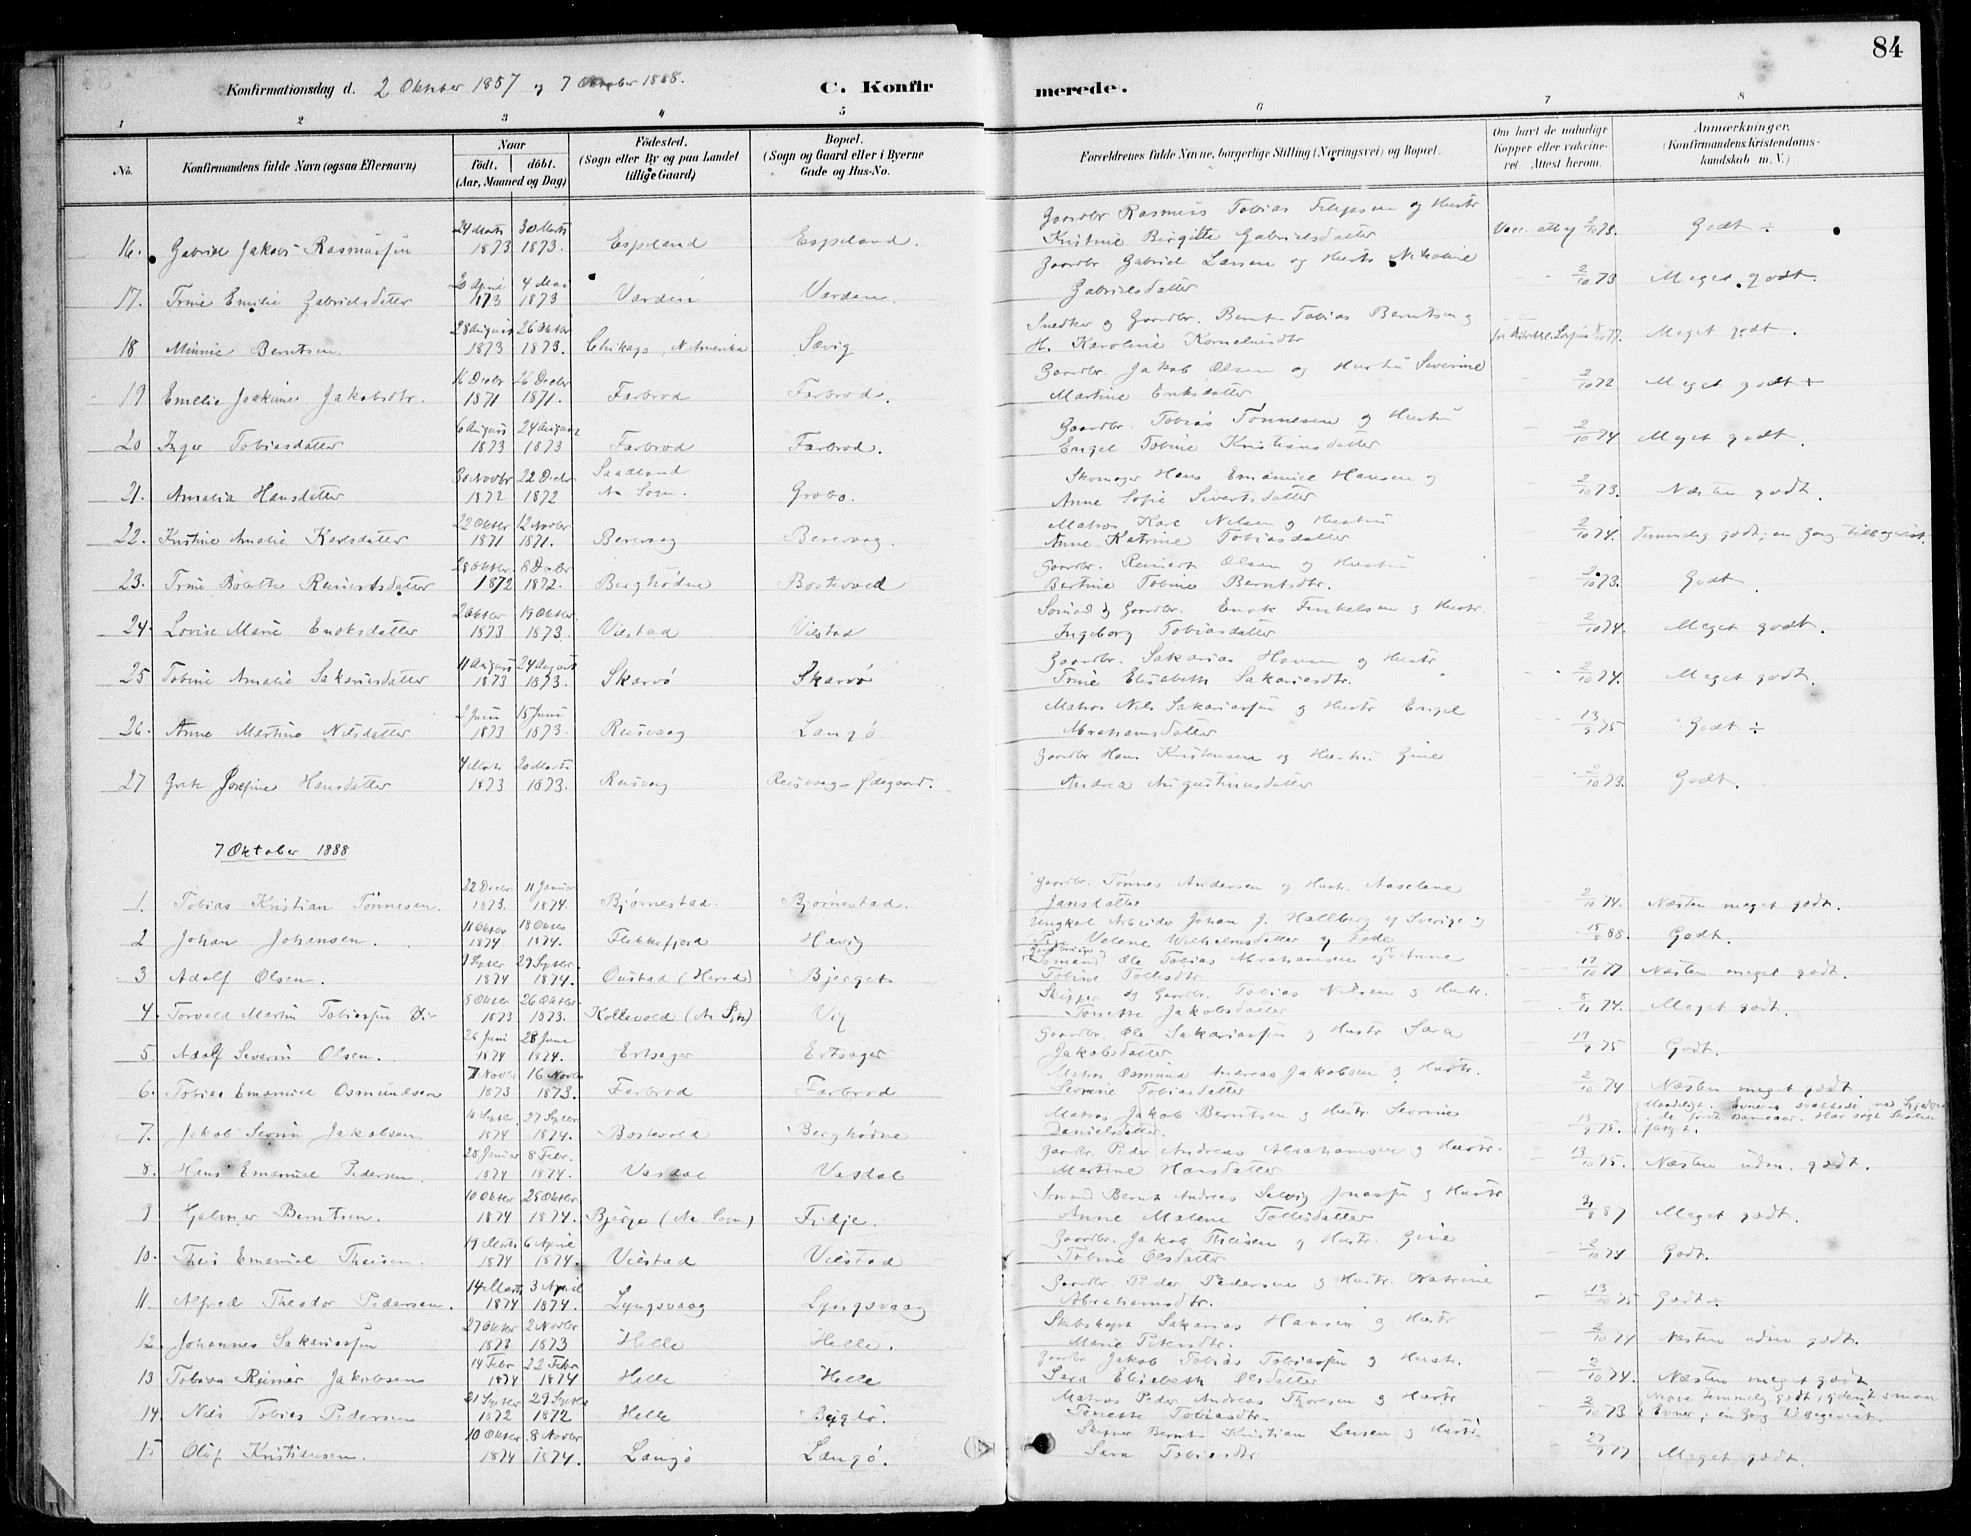 84
Konfirmationsdag d. 2 Oktober 1887 og 7 Oktober 1888.
C. Konfirmerede.
1 2 3 4 5 6 7 8
No.
Konfirmandens fulde Navn (ogsaa Efternavn)
Naar født. døbt. (Aar, Maaned og Dag)
Fødested. (Sogn eller By og paa Landet tillige Gaard)
Bopæl. (Sogn og Gaard eller i Byerne Gade og Hus-No.
Forældrenes fulde Navne, borgerlige Stilling (Næringsvei) og Bopæl.
Om havt de naturlige Kopper eller vaccineret Attest herom.
Anmærkninger. (Konfirmandens Kristendomskundskab m. V.)
16. Gabriel Jakob Rasmussen 24 Marts 1873 30 Marts 1873. Espeland Espeland. Gaardbr Rasmus Tobias Filipsen og Hustr Kristine Birgitte Gabrielsdatter Vacc. att. af 2/10 73. Godt ÷
17. Trine Emilie Gabrielsdatter 20 April 1873 4 Mai 1873 Varden Varden. Gaardbr Gabriel Larsen og Hustr Nikoline Gabrielsdatter 2/10 73 Meget godt.
18 Minnie Berntsen 28 August 1873 26 Oktbr 1873. Chikago, N. Amerika Sævig Snedker og Gaardbr. Bernt Tobias Berntsen og H. Karoline Korneliusdtr 77. Meget godt.
19 Emelie Joakime Jakobsdtr. 16 Decbr 1871 26 Decbr 1871. Farbrod Farbrod. Gaardbr. Jakob Olsen og Hustru Severine Martine Eriksdatter 2/10 72 Meget godt ÷
20 Inger Tobiasdatter 6 August 1873 24 August 1873 Farbrod Farbrod. Gaardbr. Tobias Tønnesen og Hustru Engel Tobine Kristiansdatter 2/10 74 Meget godt.
21. Amalia Hansdatter 30 Novbr 1872 22 Decbr 1872 Saadland Aa Sogn. Grobo. Skomager Hans Emanuel Hansen og Anne Sofie Sivertsdatter 2/10 73. Næsten godt.
22. Kristine Amalie Karlsdatter 22 Oktbr 1871 12 Novbr 1871. Berevaag Berevaag. Matros Karl Nilsen og Hustru Anne Katrine Tobiasdatter 2/10 74. Temmelig godt; en Gang tilbagevist.
23. Trine Bolette Reinertsdatter 28 Oktbr. 1872 8 Decbr 1872. Berghødne Bostevold Gaardbr. Reinert Olsen og Hustru Bertine Tobine Berntsdtr. 2/10 73. Godt.
24. Lovise Marie Enoksdatter 2 Oktbr 1873 19 Oktbr. 1873. Vilstad Vilstad Sømand og Gaardbr. Enok Finkelsen og Hustr. Ingeborg Tobiasdatter 2/10 74. Meget godt.
25 Tobine Amalie Sakariasdatter 11 August 1873 24 August 1873. Skarvø Skarvø Gaardbr. Sakarias Hansen og Hustr. Trine Elisabeth Sakariasdtr. 2/10 74. Meget godt.
26. Anne Martine Nilsdatter 2 Juni 1873 15 Juni 1873. Reusvaag Langø Matros Nils Sakariassen og Hustr Engel Abrahamsdatter 13/9 75 Godt ÷
27 Grete Josefine Hansdatter 4 Mats 1873 20 Marts 1873. Rusvaag Reusvaags Ødegaard. Gaardbr Hans Kristensen og Hustru Gine Andrea Augustinusdatter 2/10 73. Godt.
7 Oktober 1888
1. Tobias Kristian Tønnesen. 22 Decbr 1873. 11 Januar 1874. Bjørnestad. Bjørnestad. Gaardbr. Tønnes Andersen og Hustr. Aaselene Jansdatter 2/10 74. Næsten meget godt.
2 Johan Johansen. 11 Oktbr 1874 18 Oktbr 1874. Flekkefjord Hævig Ungkal Arbeider Johan J. Hallberg af Sverige og Pige Valene Wilhelmsdatter 15/8 88. Godt.
3 Adolf Olsen. 9 Septbr 1874 29 Septbr. 1874. Oustad (Herred) Bjerget Sømand Ole Tobias Abrahamsen og Anne Tobine Tollisdtr. 17/10 77 Næsten meget godt.
4. Torvald Martin Tobiassen 9 Oktbr 1873 26 Oktbr 1873. Kollevold (Aa Sgn) Vig Skipper og Gaardbr. Tobias Nilsen og Hustr. Tonette Jakobsdatter 8/11 74. Meget godt.
5. Adolf Severin Olsen. 26 Juni 1874 28 Juni 1874. Ertsager Ertsager Gaardbr. Ole Sakariassen og Hustr Sara Jakobsdatter 13/9 75 Godt.
6. Tobias Emanuel Osmundsen 7 Novbr 1873 16 Novbr 1873. Farbrod Farbrod Matros Osmund Andreas Jakobsen og Hustr. Severine Tobiasdatter 2/10 74 Næsten meget godt.
7. Jakob Severin Jakobsen 6 Septbr. 1874 27 Septbr 1874. Bostevold Berghødne Matros Jakob Berntsen og Hustr. Severine Danielsdatter. 13/9 75. Maadeligt. Evnerne svækkede ved Sygdom
8. Hans Emanuel Pedersen. 28 Januar 1874 8 Febr. 1874. Vasdal Vasdal Gaardbr. Peder Andreas Abrahamsen og Hustr. Martine Hansdatter 13/10 75. Næsten udm. godt.
9 Hjalmar Berntsen. 10 Oktbr 1874 25 Oktbr 1874. Bjerge (Aa Sogn) Fidje. Sømand Bernt Andreas Selvig Jonassen og Hustr Anne Malene Tollisdatter 87 Meget godt.
10. Theis Emanuel Theisen. 19 Marts 1874 6 April 1874. Vilstad Vilstad Gaardbr. Jakob Theisen og Hustr. Gine Tobine Olsdatter 2/10 74 Godt.
11 Alfred Theodor Pedersen. 14 Marts 1874 3 April 1874. Lyngsvaag Lyngsvaag Gaardbr. Peder Pedersen og Hustr. Katrine Abrahamsdtr. 13/10 75 Godt ÷
12. Johannes Sakariassen 27 Oktbr 1873 2 Novbr 1873 Helle Helle. Skibskapt Sakarias Hansen og Hustr Marie Petersdtr. 2/10 74 Næsten udm godt.
13 Tobias Reiner Jakobsen 14 Febr 1874 22 Febr 1874 Helle Helle Gaardbr Jakob Tobias Tobiassen og Hustr. Sara Elisabeth Olsdatter 2/10 74. Næsten meget godt
14. Nils Tobias Pedersen 21 Septbr 1872 29 Septbr 1872 Helle Bergtø. Matros Peder Andreas Thoresen og Hustr Tonette Tobiasdtr. 2/10 73 Neppe temmelig godt; yderst smaa Evner; en Gang tilbagevist.
15 Olaf Kristiansen. 10 Oktbr 1874 8 Novbr 1874. Langø Langø. Skipper Bernt Kristian Larsen og Hustr Sara Tobiasdtr 27/9 77 Meget godt.